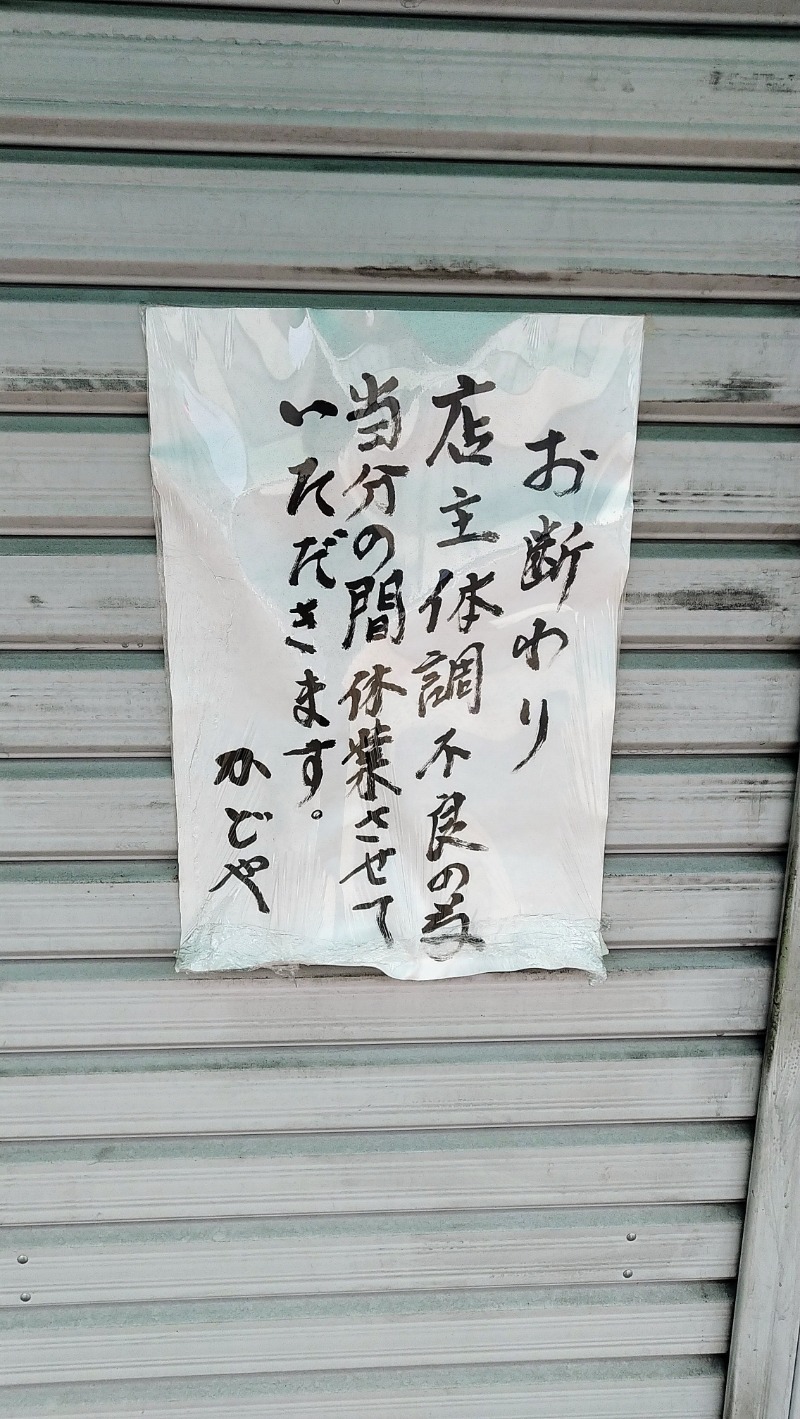 お断わり
店主体調不良の為
当分の間休業させて
いただきます。
かどや